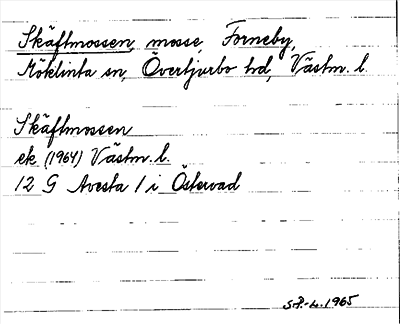 Skäftmossen, mosse, Forneby,
Möklinta sn, Övertjurbo hd, Västm. l.
Skäftmossen
ek. (1964) Västm. l.
12 G Avesta 1 i Östervad
S.P.-L. 1965